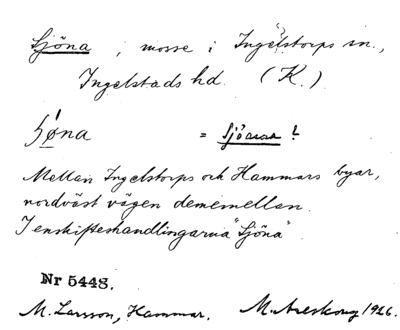 Sjöna, mosse i Ingelstorps sn.,
Ingelstads hd. (K.)
= Sjöarna?
Mellan Ingelstorps och Hammars byar,
nordväst vägen dememellan.
I enskifteshandlingarna "Sjöna"
Nr 5448.
M. Larsson, Hammar. M. Areskoug 1926.